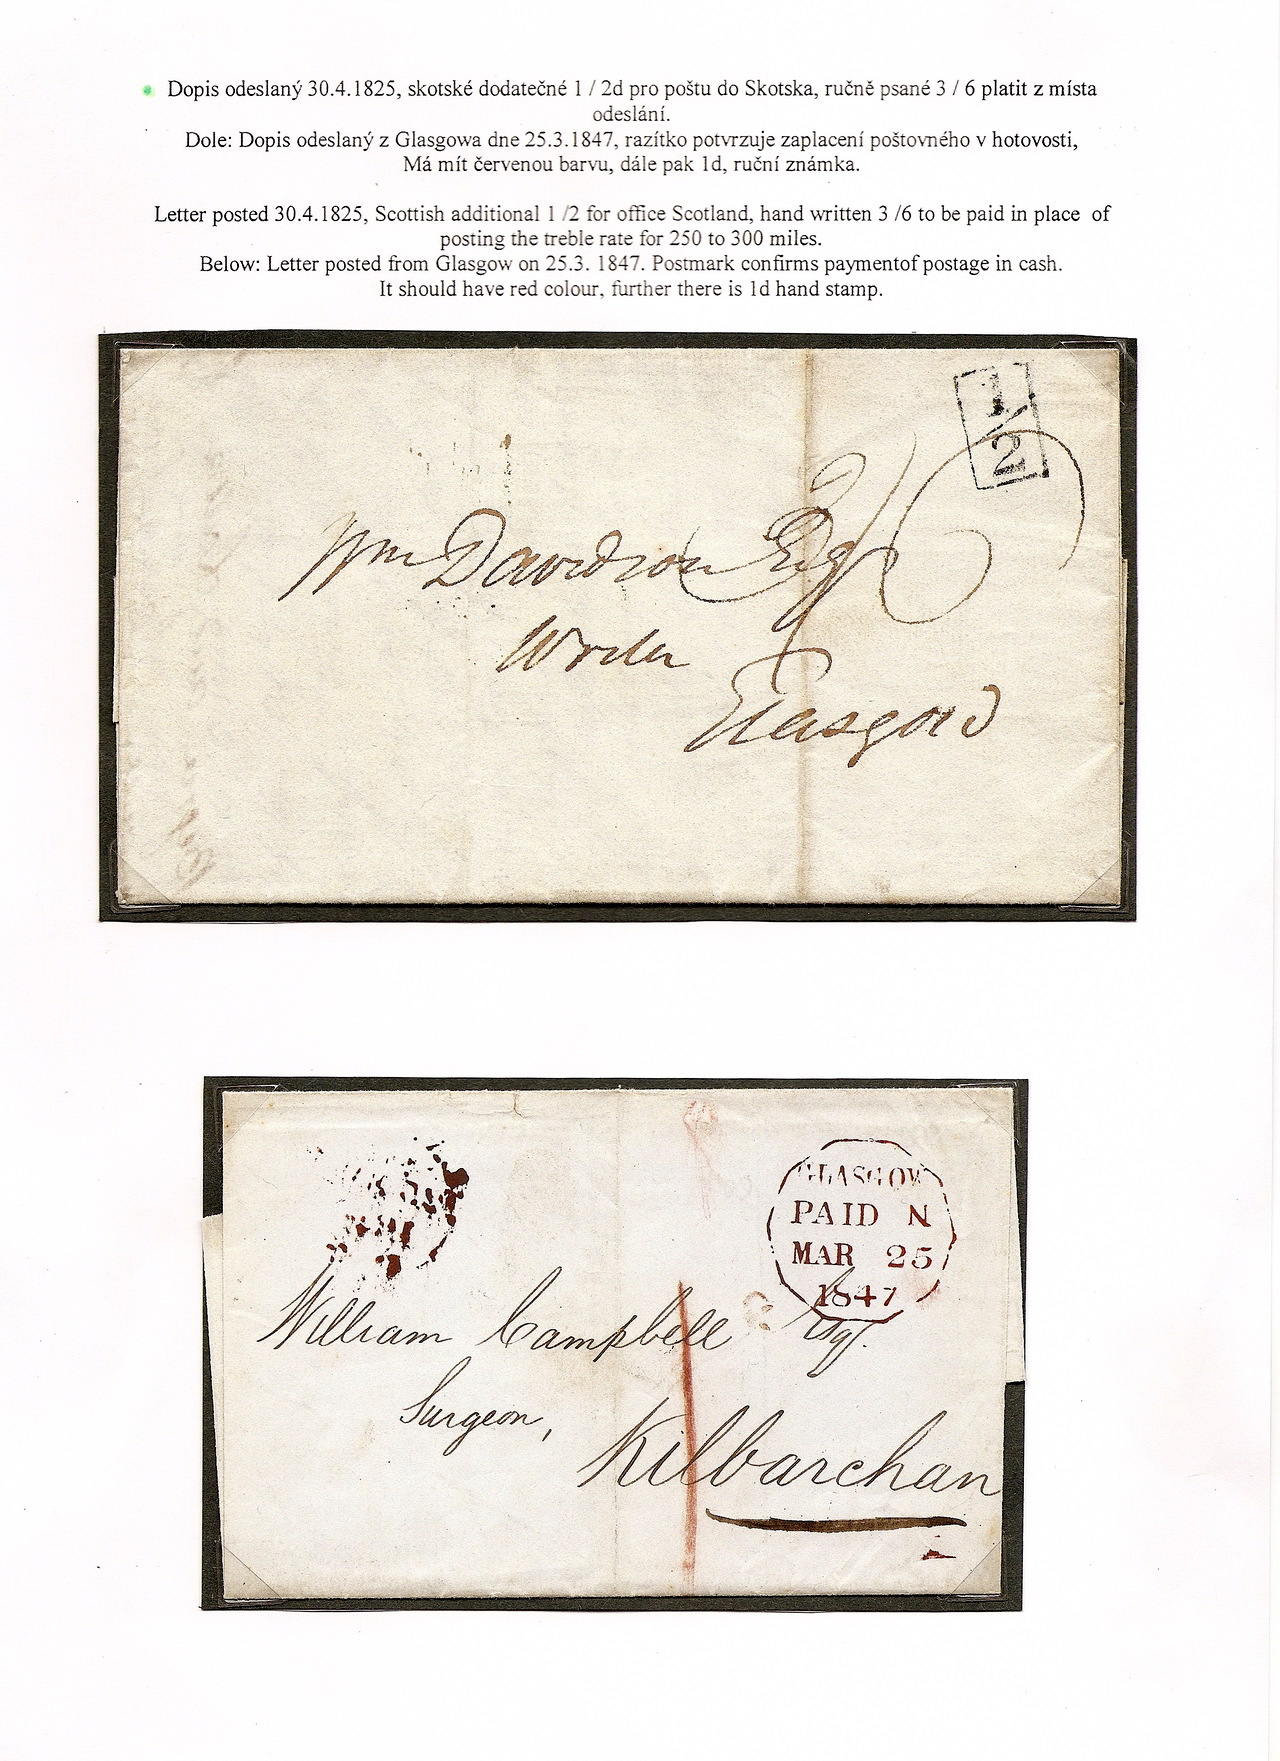 Dopis odeslaný 30.4.1825, skotské dodatečné 1 / 2d pro poštu do Skotska, ručně psané 3 / 6 platit z místa
odeslání.
Dole: Dopis odeslaný z Glasgowa dne 25.3.1847, razítko potvrzuje zaplacení poštovného v hotovosti,
Má mít červenou barvu, dále pak 1d, ruční známka.
Letter posted 30.4.1825, Scottish additional 1 /2 for office Scotland, hand written 3 /6 to be paid in place of
posting the treble rate for 250 to 300 miles.
Below: Letter posted from Glasgow on 25.3. 1847. Postmark confirms paymentof postage in cash.
It should have red colour, further there is 1d hand stamp.
1/2
3/6
Wm Davidson Esqr
Glasgow
GLASGOW
PAID N
MAR 25
1847
William Campbell Esqr.
Surgeon,
Kilbarchan